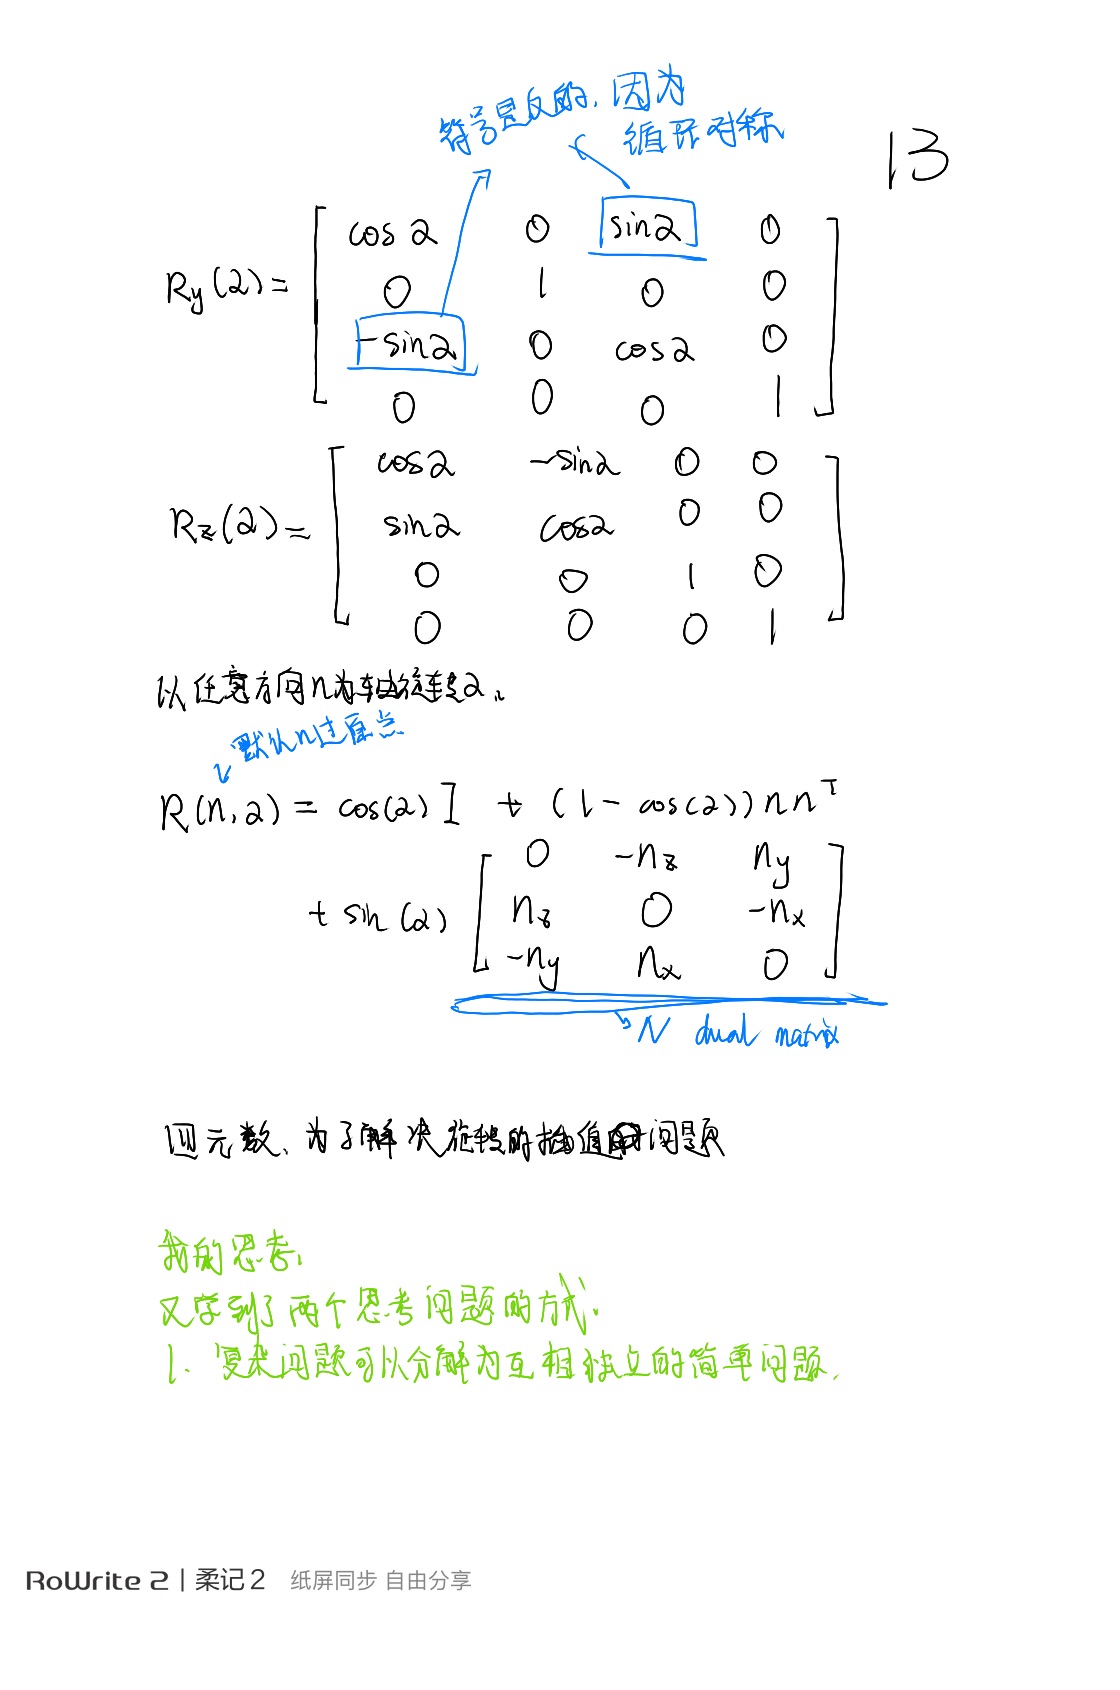 符号是反的,因为
循环对称
13
Ry(α)= [ cosα 0 sinα 0
0 1 0 0
-sinα 0 cosα 0
0 0 0 1 ]
Rz(α)= [ cosα -sinα 0 0
sinα cosα 0 0
0 0 1 0
0 0 0 1 ]
以任意方向n为轴旋转α。
默认n过原点
R(n,α) = cos(α) I + (1-cos(α)) n n^T
+ sin(α) [ 0 -nz ny
nz 0 -nx
-ny nx 0 ]
N dual matrix
四元数、为了解决旋转的插值问题
我的思考、
又学到了两个思考问题的方式.
1、复杂问题可以分解为互相独立的简单问题.
RoWrite 2 | 柔记 2 纸屏同步 自由分享